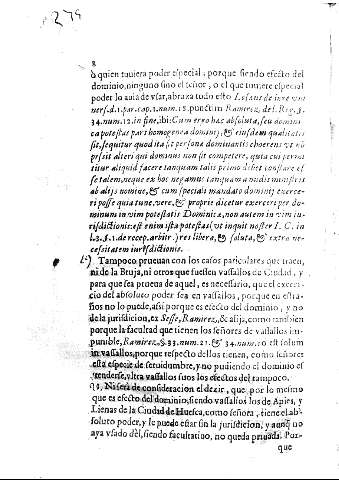 274
8
ò quien tuuiera poder especial, porque siendo efecto del
dominio, ninguno sino el señor, ò el que tuuiere especial
poder lo auia de vsar, abraza todo esto
num. 12. punctim Ramirez, del Reg. §.
34. num. 12. in fine, ibi: Cum ergo hæc absoluta, seu domini-
ca potestas pars homogenea dominij, & eiusdem qualitatis
sit, sequitur quod ita sit persone dominantis choerens vt nõ
possit alteri qui dominus non sit competere, quia cui permi-
titur aliquid facere tanquam talis primo debet constare es-
se talem, neque ex hoc negamus tanquam a nudis ministris
ab alijs nomine, & cum speciali mandato dominij exerce-
ri posse quia tunc, vere, & proprie dicetur exerceri per do-
minum in vim potestatis Dominicæ, non autem in vim iu-
risdictionis: est enim ista potestas vt inquit noster I. C. in
libera, & soluta, & extra ne-
cessitatem iurisdictionis.
Tampoco prueuan con los casos particulares que traen,
ni de la Bruja, ni otros que fuessen vassallos de Ciudad, y
para que sea prueua de aquel, es necessario, que el exerci-
cio del absoluto poder sea en vassallos, porque en estra-
ños no lo puede, assi porque es efecto del dominio, y no
de la jurisdicion, ex Sesse, Ramirez, & alijs, como tambien
porque la facultad que tienen los señores de vassallos im-
punible, Ramirez, §. 33. num. 21. & 34. num. 10. est solum
in vassallos, porque respecto dellos tienen, como señores
esta especie de seruidumbre, y no pudiendo el dominio es-
tenderse, vltra vassallos suos los efectos del tampoco.
Ni será de consideracion el dezir, que por lo mesmo
que es efecto del dominio, siendo vassallos los de Apies, y
Lienas de la Ciudad de Huesca, como señora, tiene el ab-
soluto poder, y le puede estar sin la jurisdicion, y aunq̃ no
aya vsado dèl, siendo facultatiuo, no queda priuada. Por-
que